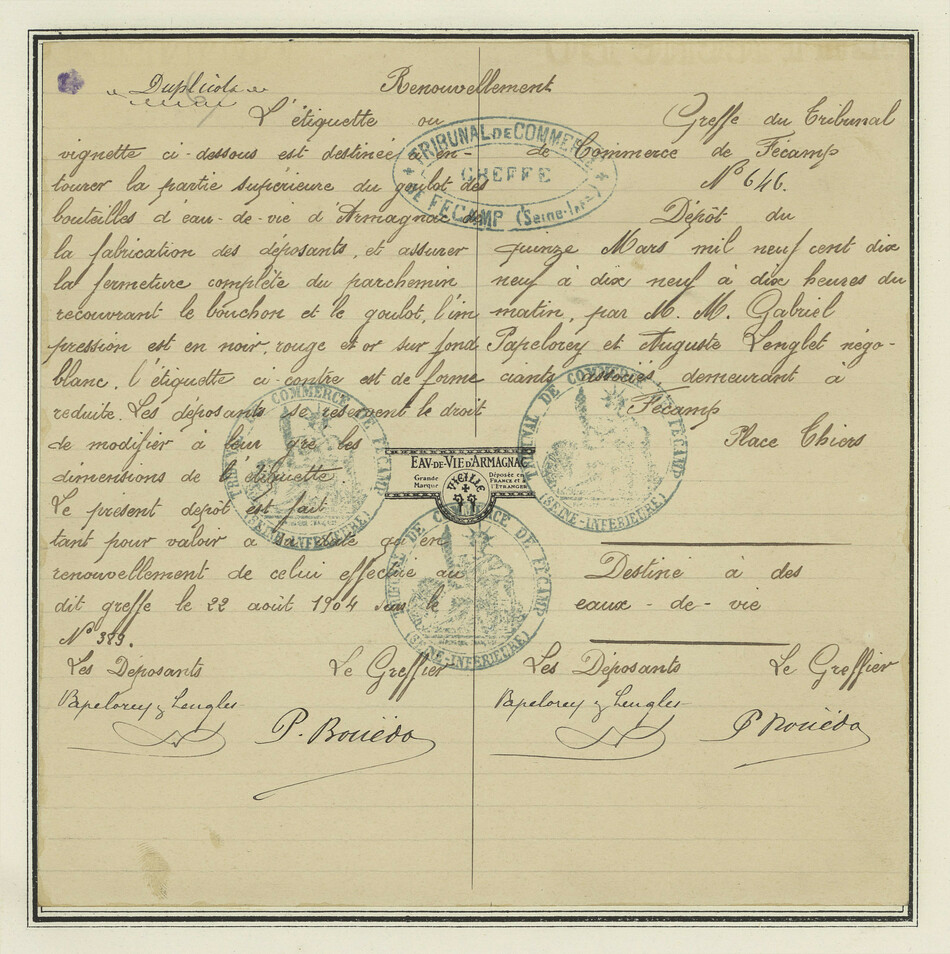 "Duplicata"
Renouvellement
L'étiquette ou
vignette ci-dessous est destinée à en-
tourer la partie supérieure du goulot des
bouteilles d'eau-de-vie d'Armagnac de
la fabrication des déposants, et assurer
la fermeture complète du parchemin
recouvrant le bouchon et le goulot, l'im
pression est en noir, rouge et or sur fond
blanc, l'étiquette ci-contre est de forme
reduite. Les déposants se réservent le droit
de modifier à leur gré les
dimensions de l'étiquette.
Le présent dépôt est fait
tant pour valoir à sa date qu'en
renouvellement de celui effectué au
dit greffe le 22 août 1904 sous le
N° 389.
Les Déposants Le Greffier
Papelorey & Lenglet
P. Bouëdo
Greffe du Tribunal
de Commerce de Fécamp
N° 646.
Dépôt du
quinze Mars mil neuf cent dix
neuf à dix neuf à dix heures du
matin, par M. M. Gabriel
Papelorey et Auguste Lenglet négo-
ciants associés, demeurant à
Fécamp
Place Thiers
Destiné à des
eaux-de-vie
Les Déposants Le Greffier
Papelorey & Lenglet
P Bouëdo
TRIBUNAL DE COMMERCE
GREFFE
DE FECAMP (Seine-Inre)
EAV-DE-VIE D'ARMAGNAC
Grande
Marque
VIEILLE
Déposée en
FRANCE et à
l'ETRANGER
TRIBUNAL DE COMMERCE DE FECAMP
(SEINE-INFERIEURE)
TRIBUNAL DE COMMERCE DE FECAMP
(SEINE-INFERIEURE)
TRIBUNAL DE COMMERCE DE FECAMP
(SEINE-INFERIEURE)